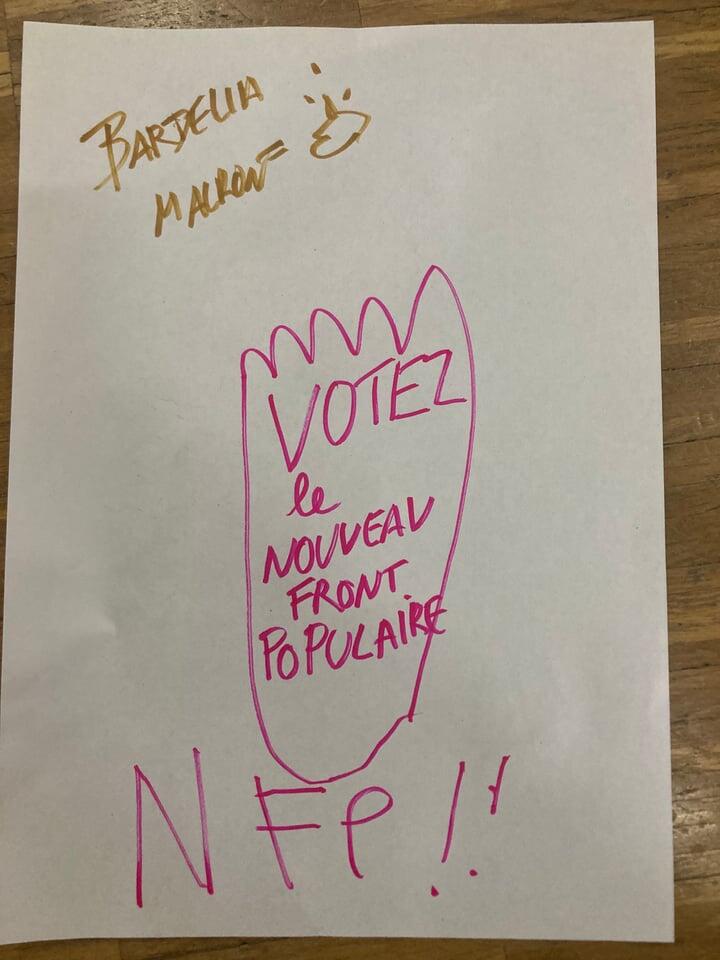 BARDELLA
MACRON =
VOTEZ
le
NOUVEAU
FRONT
POPULAIRE
NFP !!